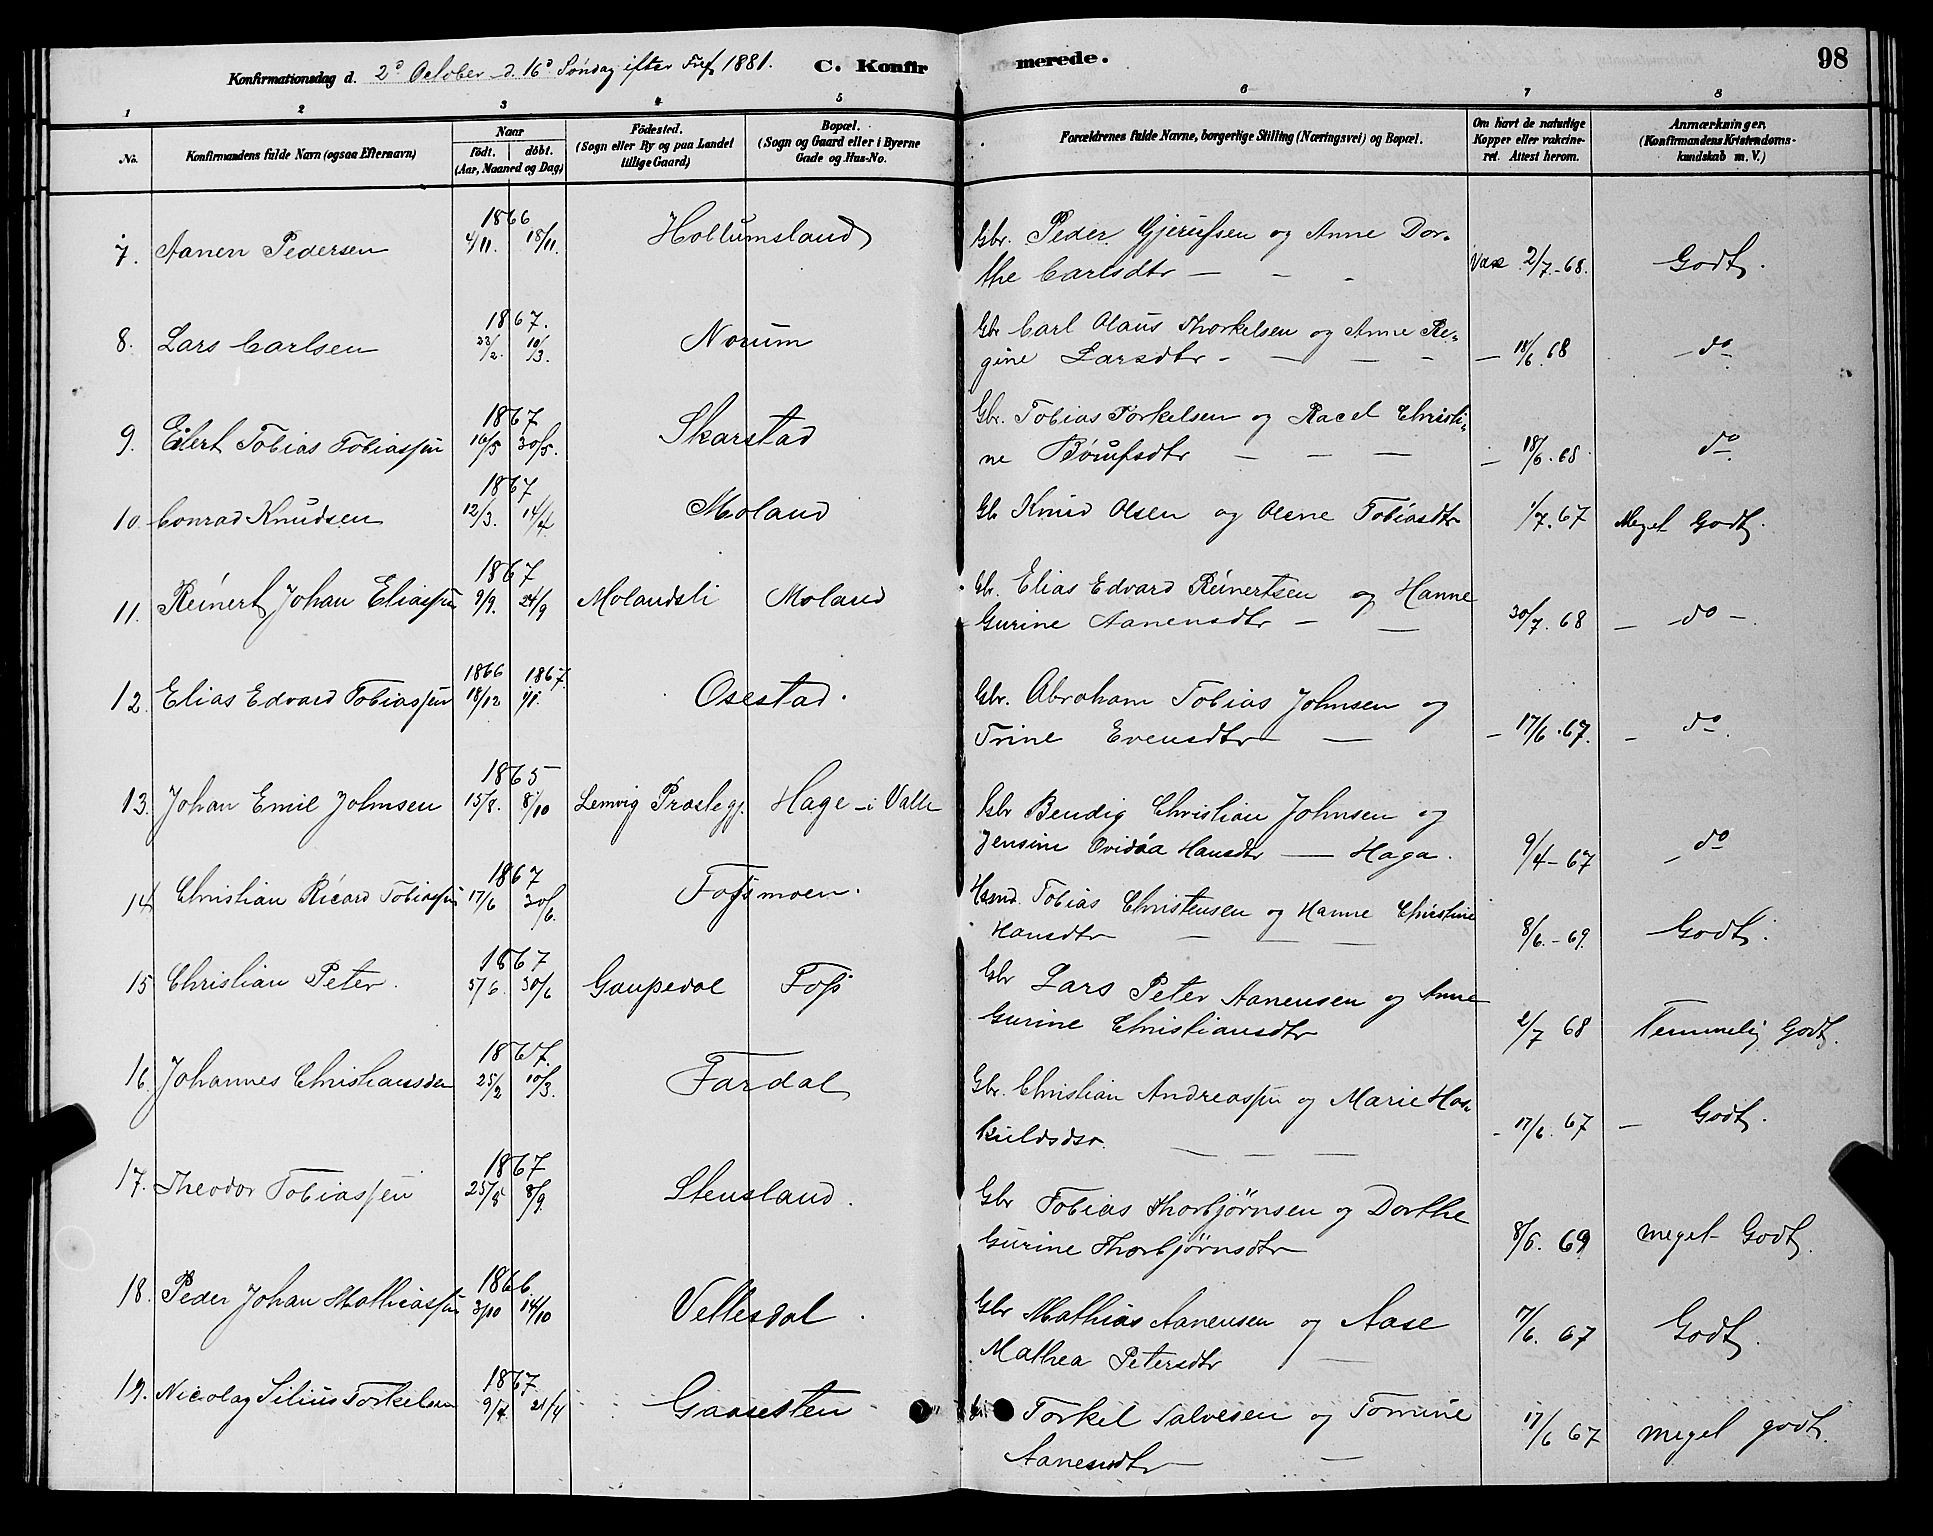 98
Konfirmationsdag d. 2d October d. 16d Søndag efter Tref. 1881. C. Konfirmerede.
1 2 3 4 5 6 7 8
No. Konfirmandens fulde Navn (ogsaa Efternavn) Naar født. døbt. (Aar, Maaned og Dag) Fødested. (Sogn eller By og paa Landet tillige Gaard) Bopæl. (Sogn og Gaard eller i Byerne Gade og Hus-No. Forældrenes fulde Navne, borgerlige Stilling (Næringsvei) og Bopæl. Om havt de naturlige Kopper eller vakcineret. Attest herom. Anmærkninger. (Konfirmandens Kristendomskundskab m. V.)
7. Aanen Pedersen 1866 4/11. 18/11. Hollumsland Gbr. Peder Gjerufsen og Anne Dorthe Carlsdtr — - - Vax 2/7-68. Godt.
8. Lars Carlsen 1867. 23/2. 10/3. Norum Gbr Carl Olaus Thorkelsen og Anne Regine Larsdtr - — — - — 18/6.68 — do
9. Eilert Tobias Tobiassen 1867 16/5 30/5. Skarstad Gbr. Tobias Torkelsen og Racel Christine Børufsdtr — — — — 18/6.68 do
10. Conrad Knudsen 1867 12/3. 14/4 Moland Gbr Knud Olsen og Olene Tobiasdtr 1/7.67 Meget Godt.
11. Reinert Johan Eliassen 1867 9/9. 24/9 Molandsli Moland Gbr. Elias Edvard Reinertsen og Hanne Gurine Aanensdtr — — 30/7.68 — do —.
12. Elias Edvard Tobiassen 1866 18/12 1867. 1/1. Osestad. Gbr. Abraham Tobias Johnsen og Trine Evensdtr — — — 17/6.67. — do.
13. Johan Emil Johnsen 1865 15/8. 8/10 Lemvig Præstegj. Hage i Valle Gbr Bendig Christian Johnsen og Jensine Ovidåa Hansdtr — Haga. 9/4-67 — do
14 Christian Ricard Tobiassen 1867 17/6 30/6. Fossmoen. Hsmd. Tobias Christensen og Hanne Christine Hansdtr — — — 8/6.-69. Godt.
15 Christian Peter. 1867 5/6. 30/6 Gaupedal Foss Gbr Lars Peter Aanensen og Anne Gurine Christiansdtr 2/7 68 Temmelig Godt.
16. Johannes Christiansden 1867. 25/2 10/3. Fardal Gbr. Christian Andreassen og Marie Hoskuldsdtr. — — — - 17/6.67 — Godt.
17. Theodor Tobiassen 1867 25/8 8/9. Stensland. Gbr Tobias Thorbjørnsen og Dorthe Gurine Thorbjørnsdtr 8/6.69 meget Godt.
18. Peder Johan Mathiassen 1866. 3/10 14/10 Vellesdal. Gbr Mathias Aanensen og Aase Mathea Petersdtr — 17/6.67 Godt.
19. Nicolay Silius Torkelsen 1867 9/4. 21/4 Gaasesten Torkel Salvesen og Tomine Aanensdtr — 17/6 67 meget godt.